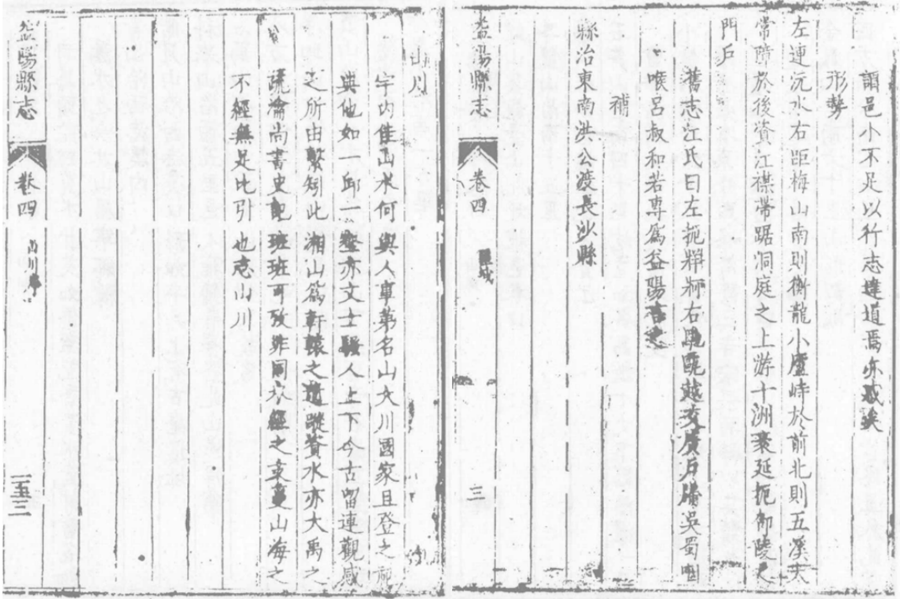 謂邑小不足以行志達道焉亦惑矣
形勢
左連沅水右距梅山南則衡龍小廬峙於前北則五溪大
常障於後資江襟帶踞洞庭之上游十洲袤延扼御陵之
門戶
舊志江氏曰左扼牂牁右甌越交廣戶牖吳蜀咽
喉呂叔和若專為益陽
補
縣治東南洪公渡長沙縣
益陽縣志 卷四 三
山川
宇內佳山水何與人事第名山大川國家且登之祀
典他如邱壑亦文士騷人上下今古留連觀感
之所由繫矧此湘山為軒轅之遺蹤資水亦大禹之
疏瀹尚書史記班班可攷非同水經之支蔓山海之
不經無足比引也志山川
益陽縣志 卷四 山川 三